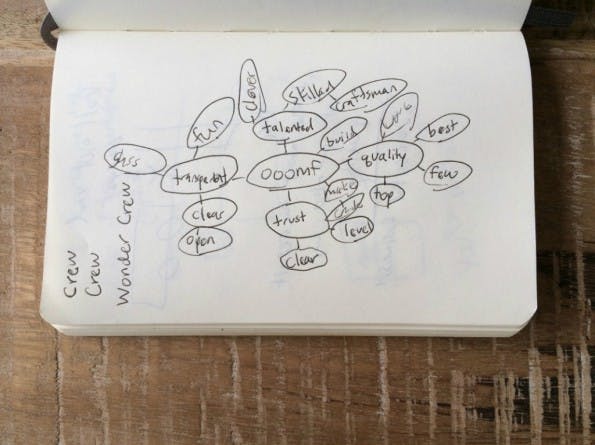 clever
skilled
craftsman
fun
talented
build
best
glass
transparent
ooomf
quality
few
make
top
clear
trust
level
open
clear
Crew
Crew
Wonder Crew